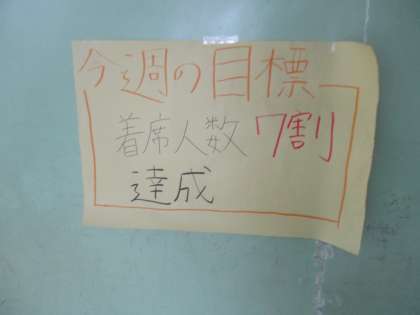 今週の目標
着席人数 7割
達成